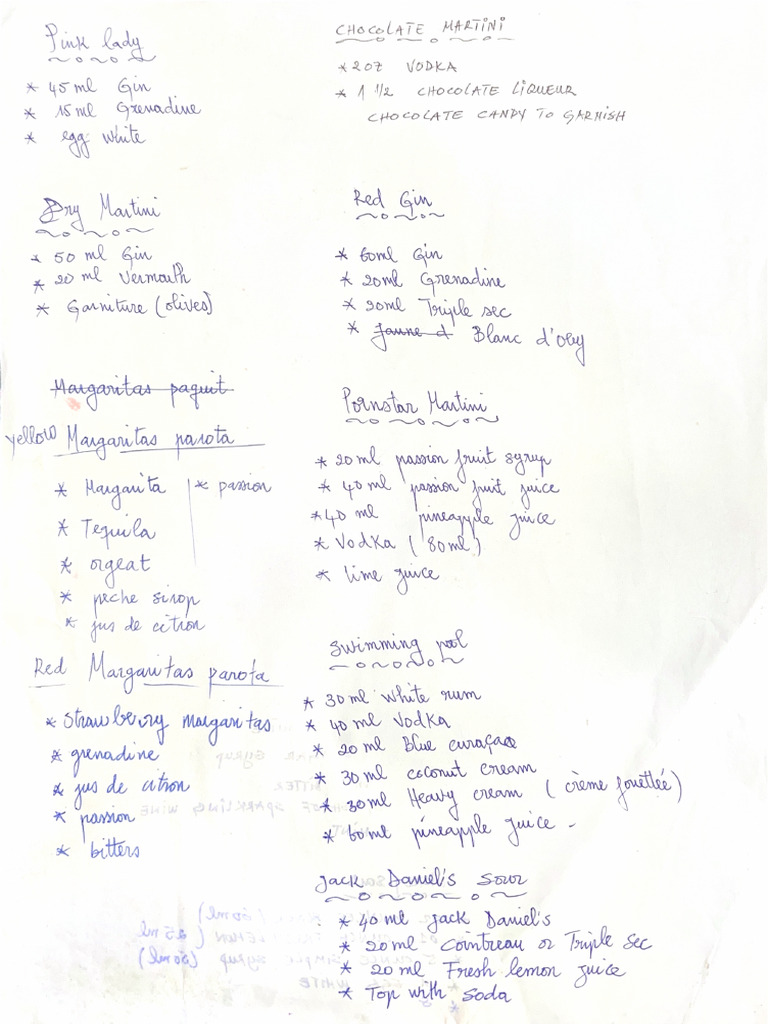 Pink lady
* 45 ml Gin
* 15 ml Grenadine
* egg white
Dry Martini
* 50 ml Gin
* 20 ml Vermouth
* Garniture (olives)
Margaritas paquit
yellow Margaritas parota
* Margarita | * passion
* Tequila
* orgeat
* peche sirop
* jus de citron
Red Margaritas parota
* Strawberry margaritas
* grenadine
* jus de citron
* passion
* bitters
CHOCOLATE MARTINI
* 2oz VODKA
* 1 1/2 CHOCOLATE LIQUEUR
CHOCOLATE CANDY TO GARNISH
Red Gin
* 60ml Gin
* 20ml Grenadine
* 20ml Triple sec
* Jaune d Blanc d'oey
Pornstar Martini
* 20 ml passion fruit syrup
* 40 ml passion fruit juice
* 40 ml pineapple juice
* Vodka (80ml)
* lime juice
Swimming pool
* 30 ml white rum
* 40 ml Vodka
* 20 ml Blue curaçao
* 30 ml coconut cream
* 30ml Heavy cream (crème fouettée)
* 60ml pineapple juice -
Jack Daniel's sour
* 40 ml Jack Daniel's
* 20 ml Cointreau or Triple sec
* 20 ml Fresh lemon juice
* Top with soda